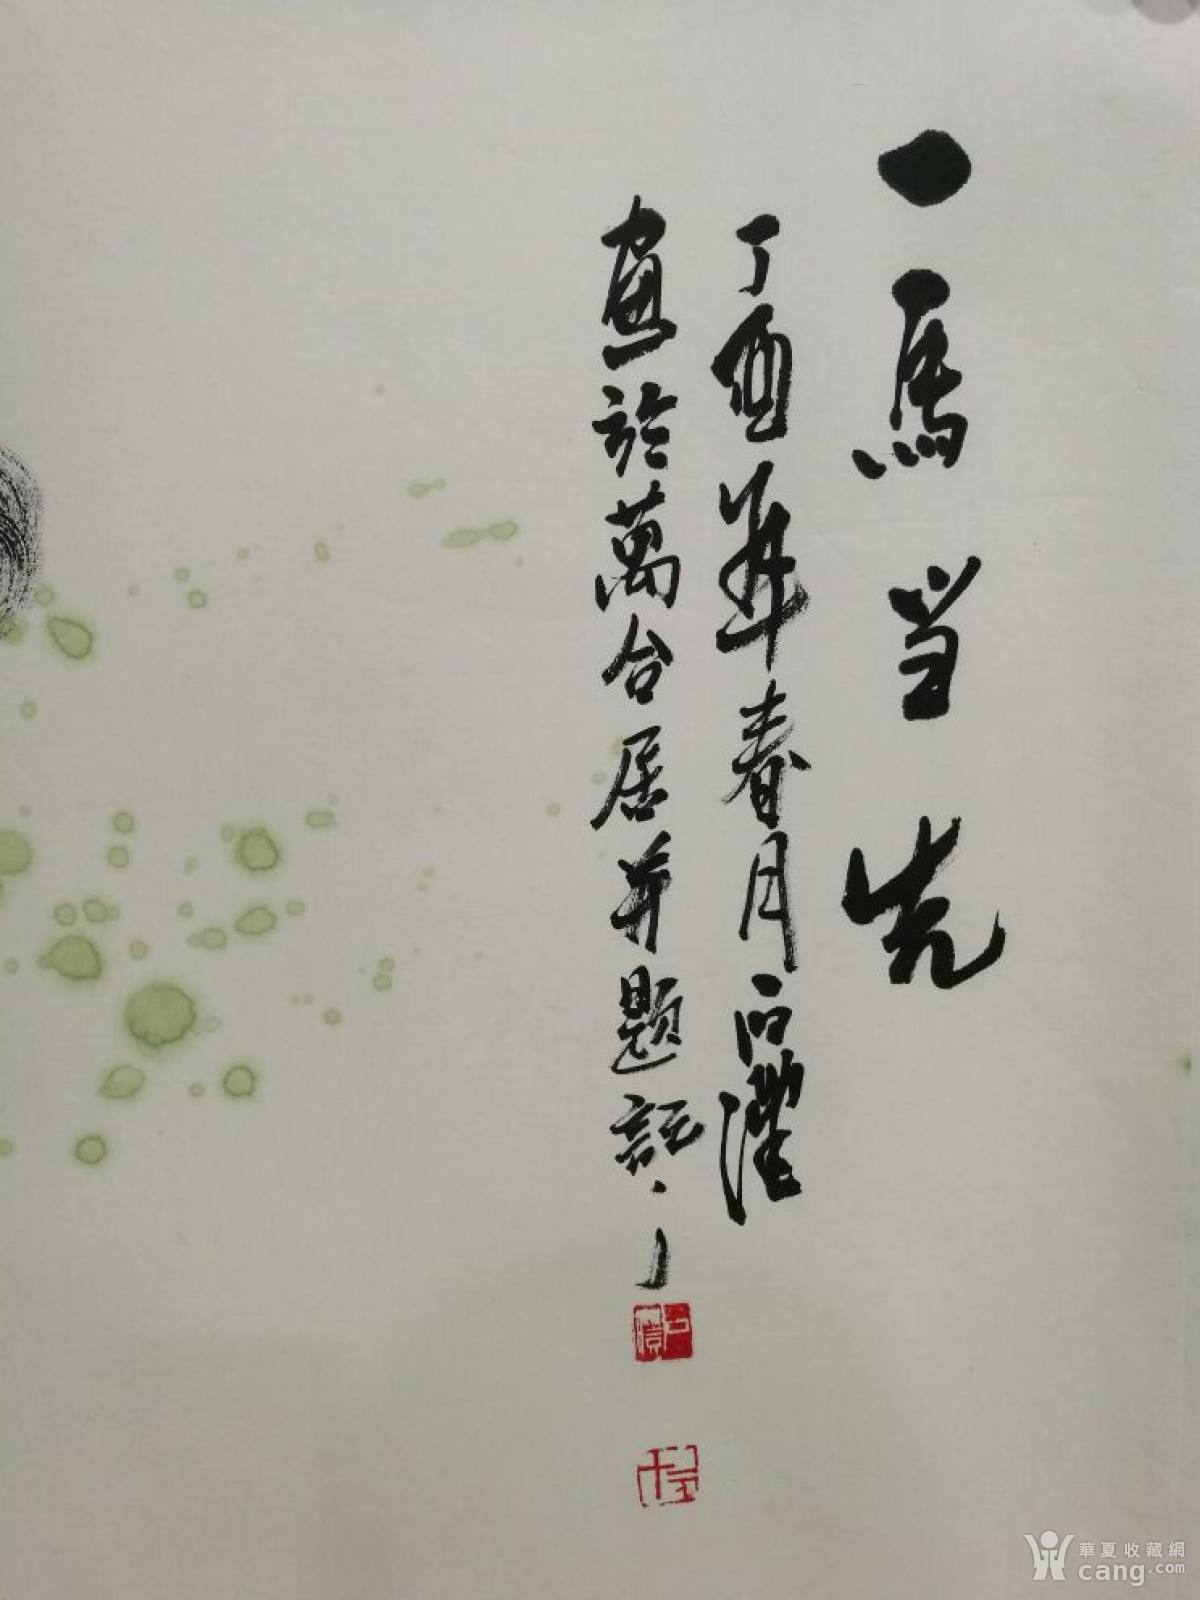 一馬当先
丁酉年春月石澤
畫於萬台居并題記
華夏收藏網
cang.com